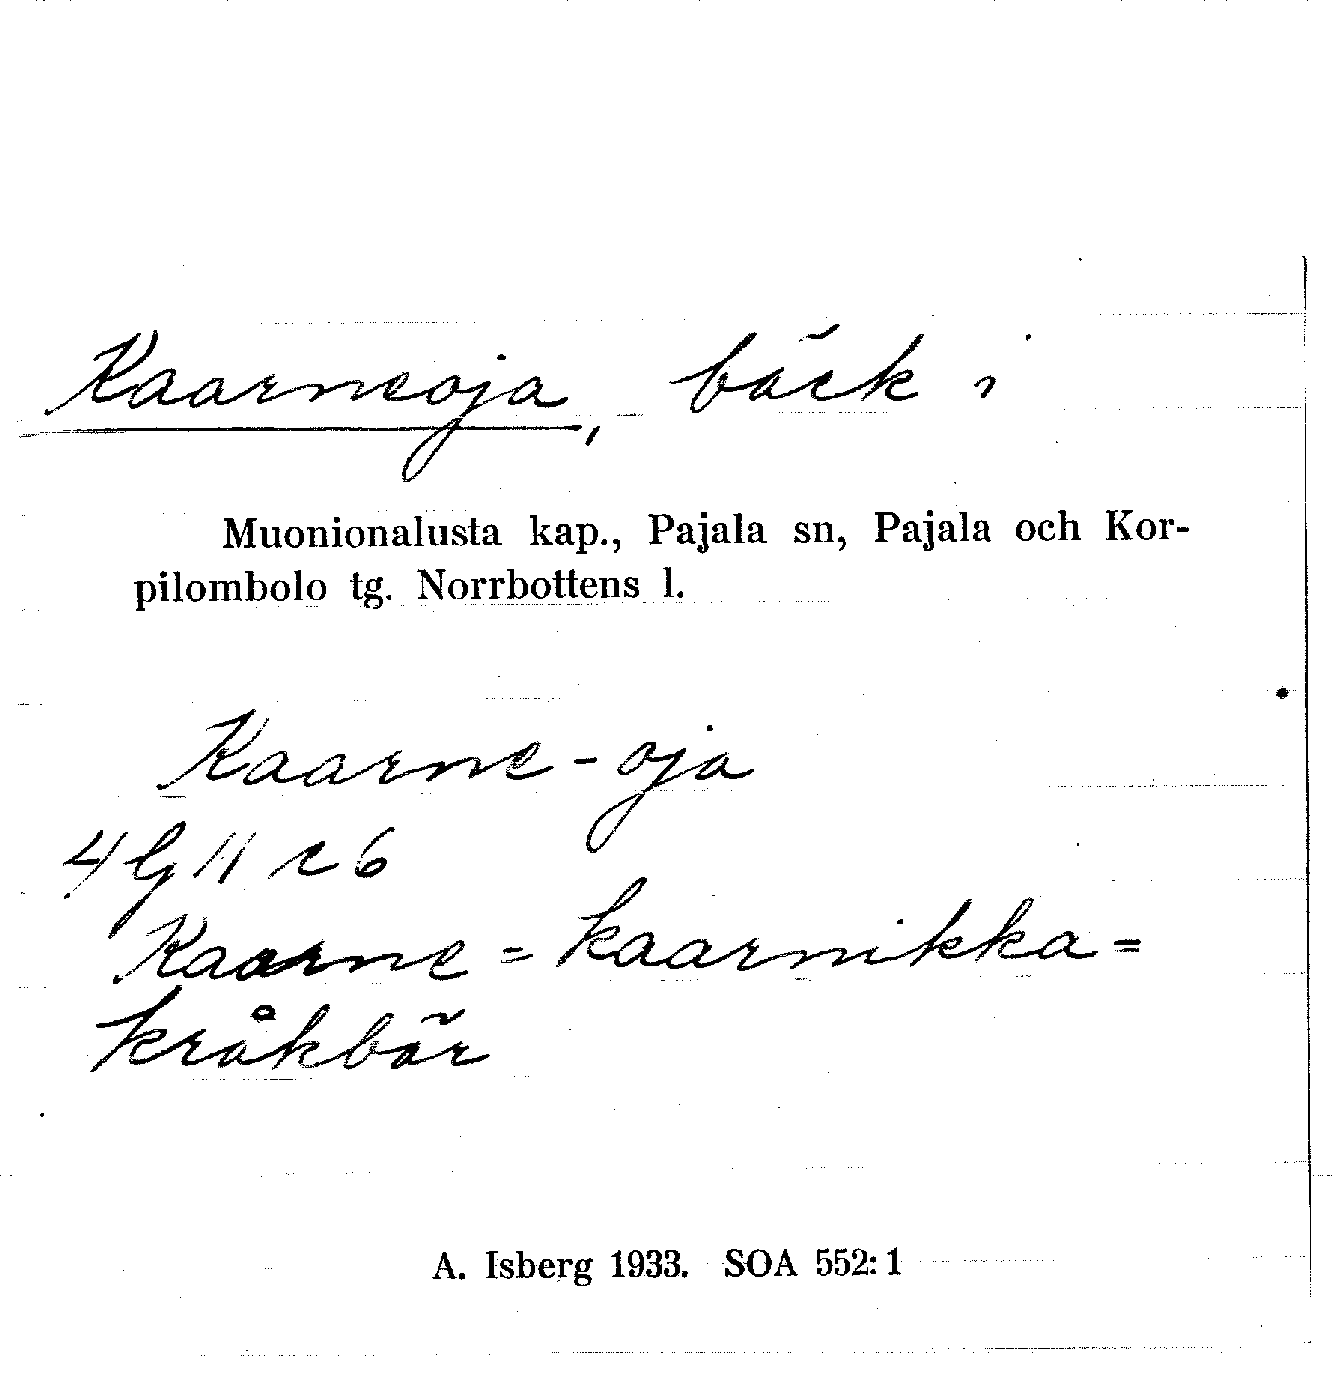 Kaarneoja, bäck i
Muonionalusta kap., Pajala sn, Pajala och Kor-
pilombolo tg. Norrbottens l.
Kaarne-oja
11 c 6
Kaarne = kaarnikka =
kråkbär
A. Isberg 1933. SOA 552:1